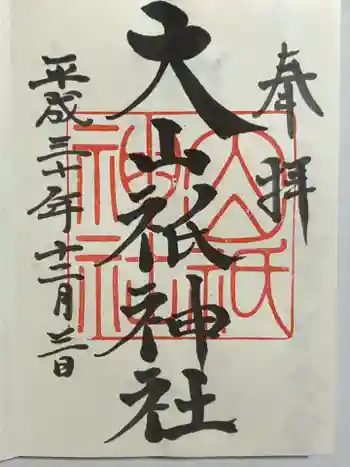 奉拝
大山祇神社
平成三十年十二月三日
大山祇神社